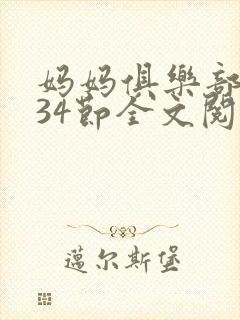 妈妈俱樂部
34節全文閱
邁尔斯堡